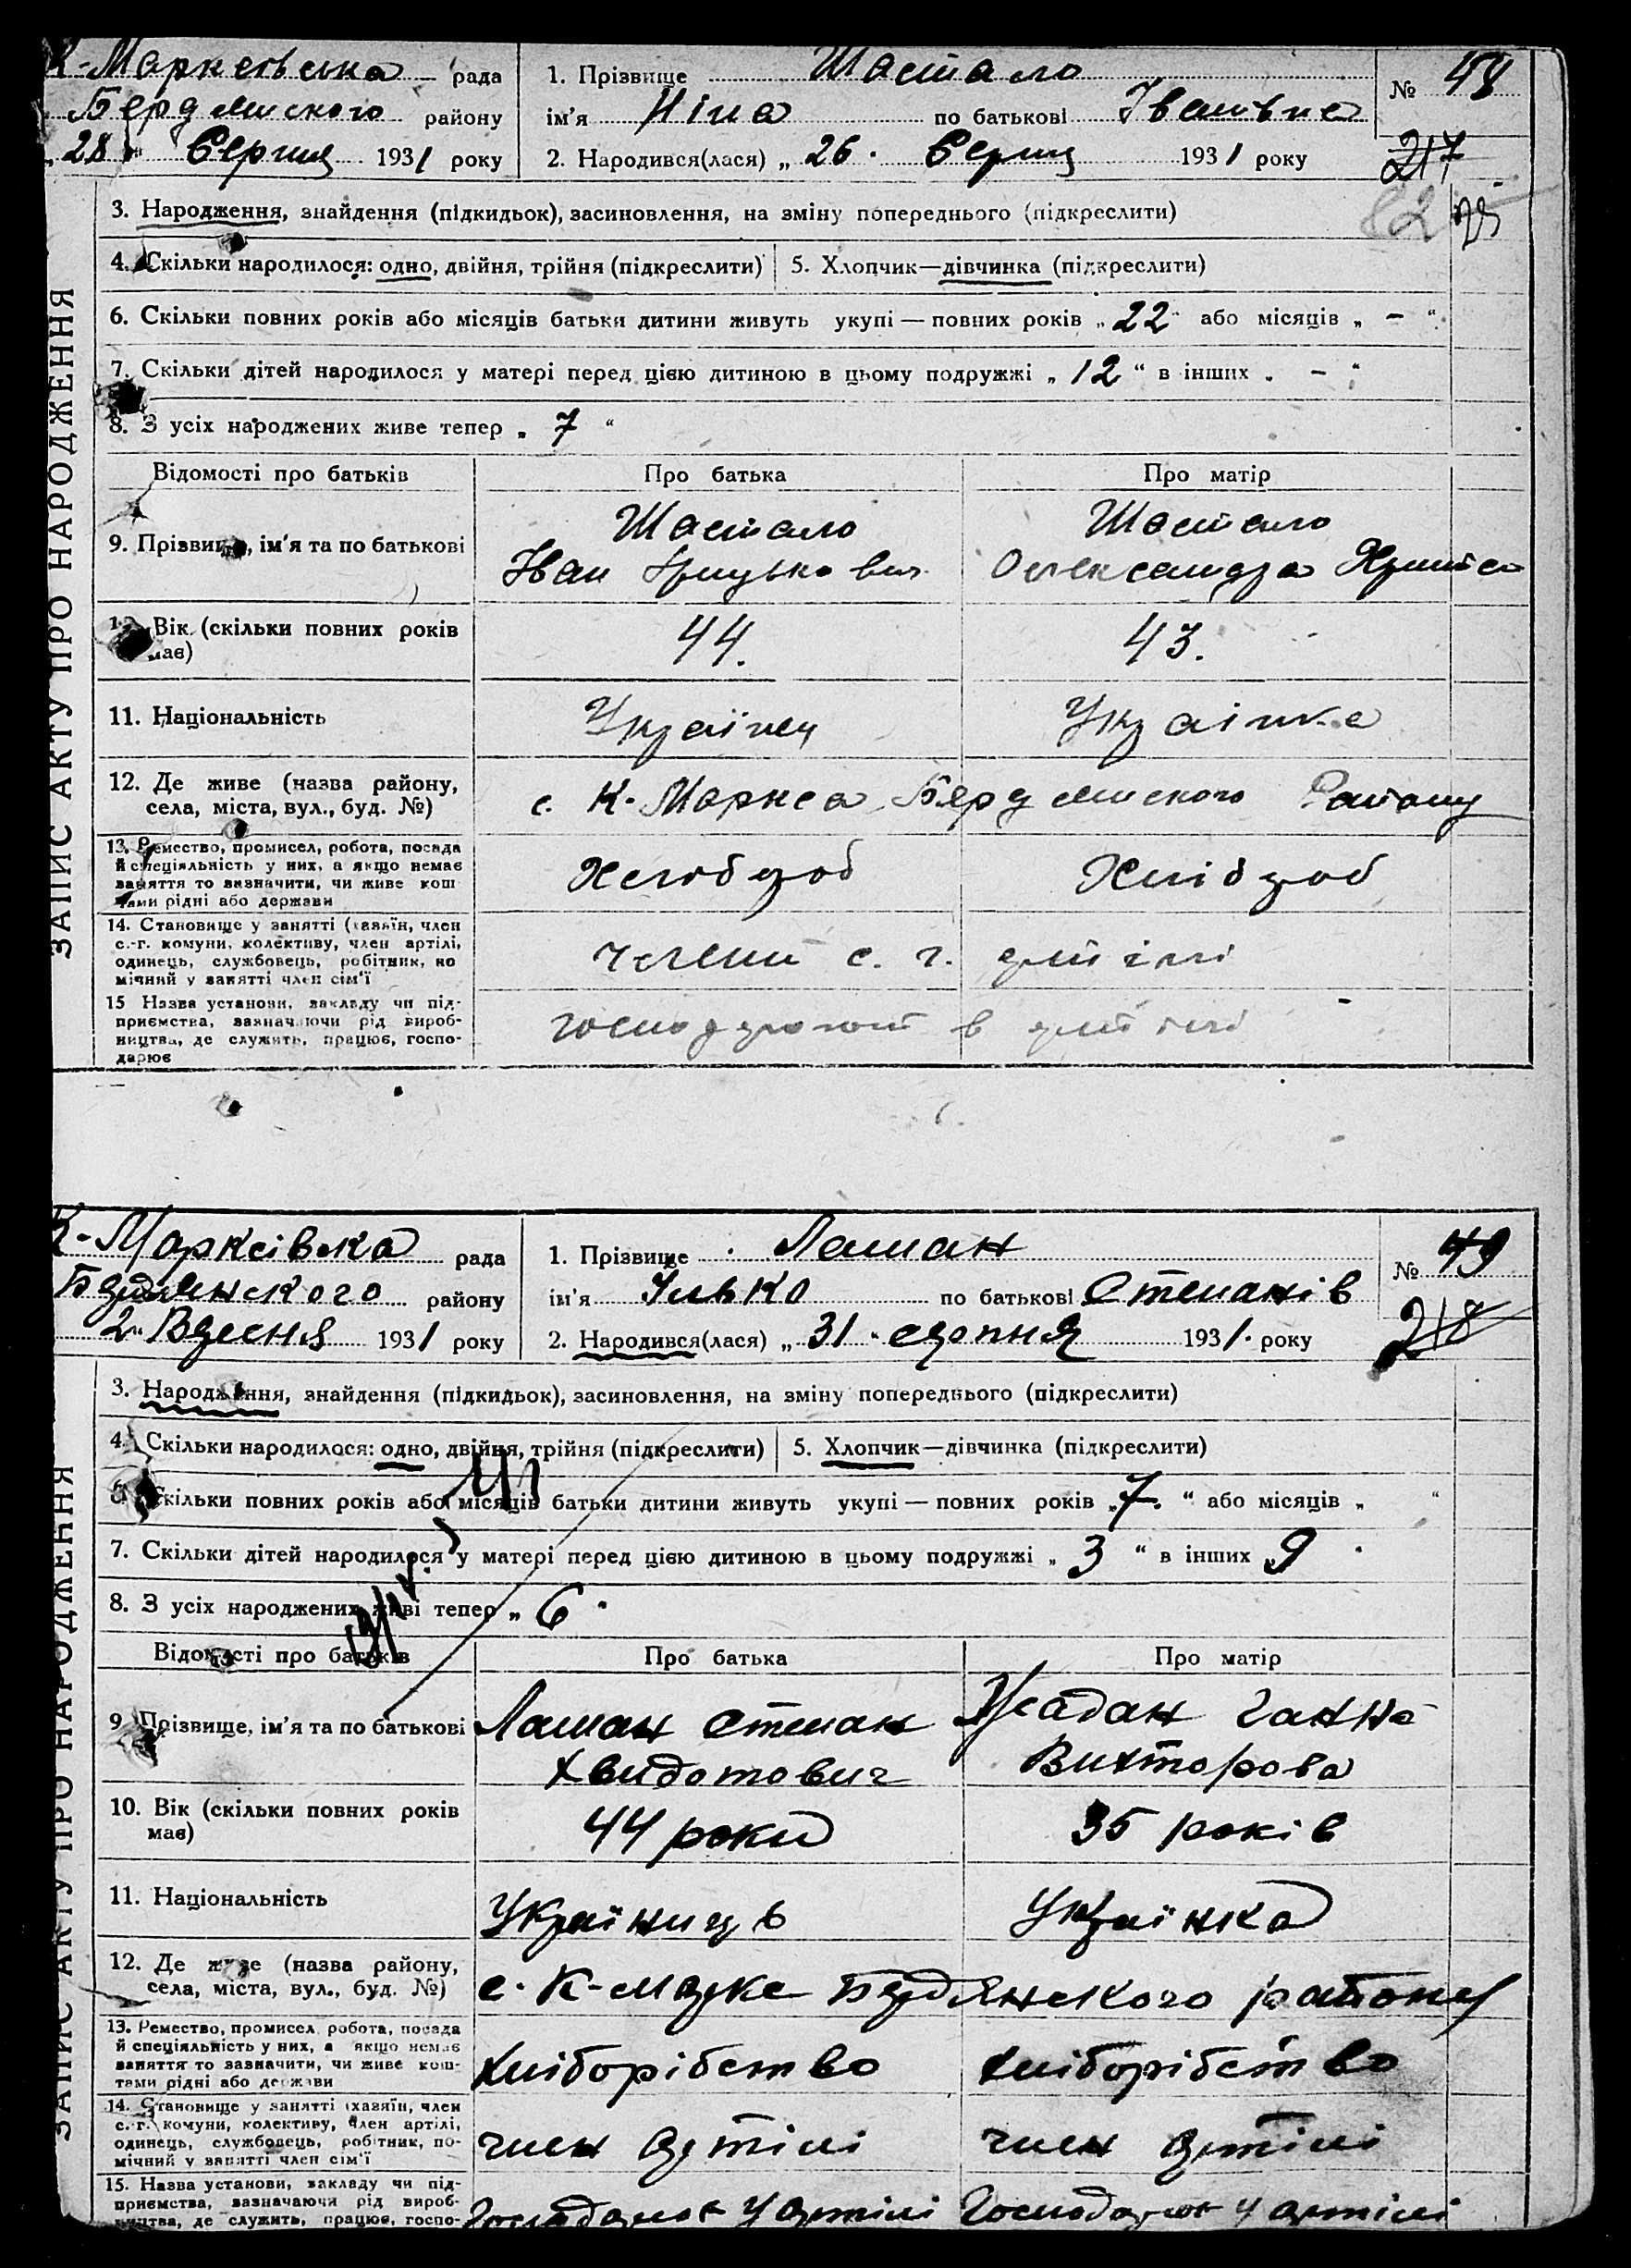 К-Марксівська рада
Бердянського району
„28" Серпня 1931 року
1. Прізвище Шастало
ім'я Ніна по батькові Іванівна
2. Народився(лася) „26" Серпн 1931 року
№ 48
217
82
ЗАПИС АКТУ ПРО НАРОДЖЕННЯ
3. Народження, знайдення (підкидьок), засиновлення, на зміну попереднього (підкреслити)
4. Скільки народилося: одно, двійня, трійня (підкреслити) 5. Хлопчик—дівчинка (підкреслити)
6. Скільки повних років або місяців батьки дитини живуть укупі — повних років „22" або місяців „ - "
7. Скільки дітей народилося у матері перед цією дитиною в цьому подружжі „12" в інших „ - "
8. З усіх народжених живе тепер „7"
Відомості про батьків Про батька Про матір
9. Прізвище, ім'я та по батькові Шастало Іван Грицькович Шастало Олександра
10. Вік (скільки повних років має) 44. 43.
11. Національність Українец Украінка
12. Де живе (назва району, села, міста, вул., буд. №) с. К-Маркса Бердянського Району
13. Ремество, промисел, робота, посада й спеціяльність у них, а якщо немає заняття то визначити, чи живе коштами рідні або держави Хлібороб Хлібороб
14. Становище у занятті (хазяїн, член с.-г. комуни, колективу, член артілі, одинець, службовець, робітник, помічний у занятті член сім'ї члени с. г. артілі
15 Назва установи, закладу чи підприємства, зазначаючи рід виробництва, де служить, працює, господарює господарюют в артілі
К-Марксівка рада
Бердянского району
2" Вересня 1931 року
1. Прізвище Лашан
ім'я Ілько по батькові Степанів
2. Народився(лася) „31" серпня 1931. року
№ 49
218
ЗАПИС АКТУ ПРО НАРОДЖЕННЯ
3. Народження, знайдення (підкидьок), засиновлення, на зміну попереднього (підкреслити)
4. Скільки народилося: одно, двійня, трійня (підкреслити) 5. Хлопчик—дівчинка (підкреслити)
6. Скільки повних років або місяців батьки дитини живуть укупі — повних років „7." або місяців „ "
7. Скільки дітей народилося у матері перед цією дитиною в цьому подружжі „3" в інших „9"
8. З усіх народжених живі тепер „6"
Відомості про батьків Про батька Про матір
9. Прізвище, ім'я та по батькові Лашан Степан Хвидотович Жадан Ганна Вихторова
10. Вік (скільки повних років має) 44 роки 35 років
11. Національність Україниць Українка
12. Де живе (назва району, села, міста, вул., буд. №) с. К-Маркс Бердянского району
13. Ремество, промисел, робота, посада й спеціяльність у них, а якщо немає заняття то зазначити, чи живе коштами рідні або держави хліборібство хліборібство
14. Становище у занятті (хазяїн, член с.-г. комуни, колективу, член артілі, одинець, службовець, робітник, помічний у занятті член сім'ї член артілі член артілі
15. Назва установи, закладу чи підприємства, зазначаючи рід виробництва, де служить, працює, госпо- Господарює у артілі Господарює у артілі